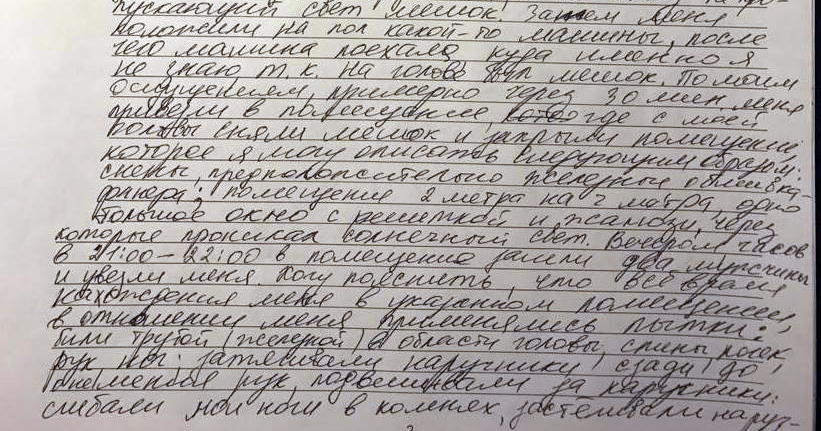 пускающий свет мешок. Затем меня
положили на пол какой-то машины, после
чего машина поехала, куда именно я
не знаю т.к. на голове был мешок. По моим
ощущениям, примерно через 30 мин меня
привели в помещение, где с моей
головы сняли мешок и закрыли помещение,
которое я могу описать следующим образом:
стены, предположительно железные обшивка-
фанера; помещение 2 метра на 2 метра, одно
большое окно с решеткой и жалюзи, через
которые проникал солнечный свет. Вечером, часов
в 21:00-22:00 в помещение зашли два мужчины
и увезли меня. Хочу пояснить, что всё время
нахождения меня в указанном помещении,
в отношении меня применялись пытки:
били трубой (железной) в области головы, спины, почек,
рук ног; затягивали наручники сзади до
онеменья рук, подвешивали за наручники;
сгибали мои ноги в коленях, застегивали наруч-